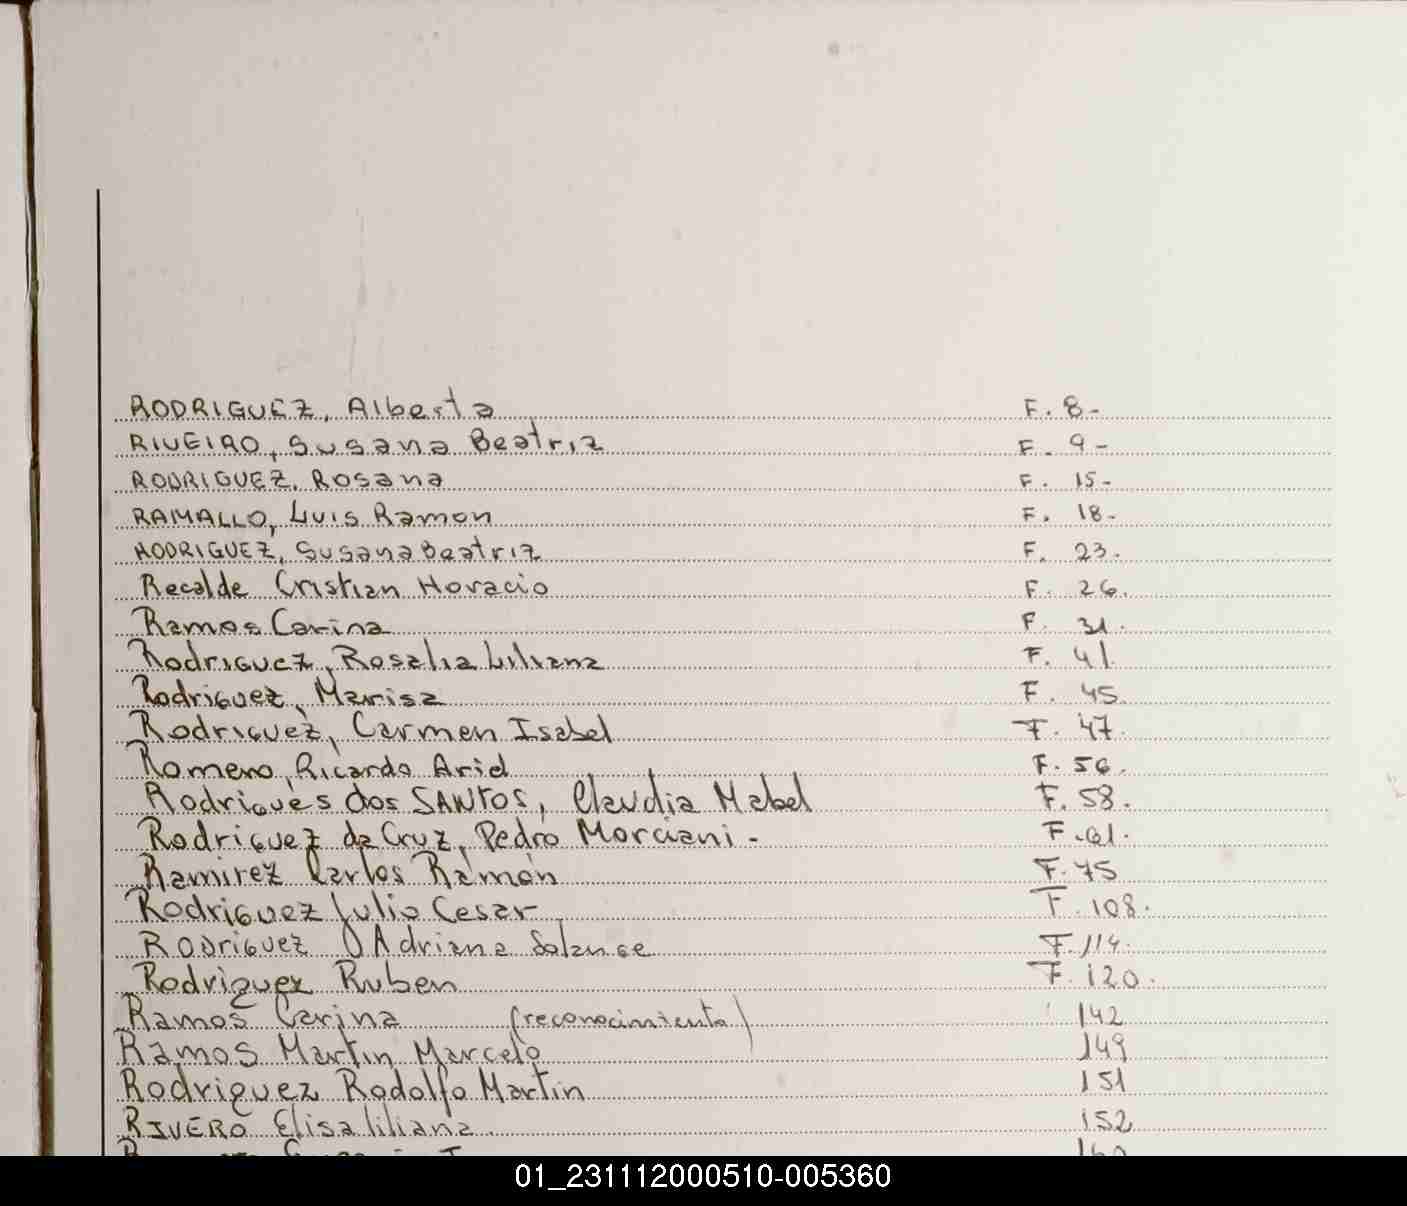 RODRIGUEZ, Alberta F. 8-
RIVEIRO, Susana Beatriz F. 9-
RODRIGUEZ, Rosana F. 15-
RAMALLO, Luis Ramon F. 18-
RODRIGUEZ, Susana Beatriz F. 23.
Recalde Cristian Horacio F. 26.
Ramos Carina F. 31.
Rodriguez, Rosalia Liliana F. 41.
Rodriguez, Marisa F. 45.
Rodriguez, Carmen Isabel F. 47.
Romero, Ricardo Ariel F. 56.
Rodrigues dos SANTOS, Claudia Mabel F. 58.
Rodriguez da Cruz, Pedro Marciani. F. 61.
Ramirez Carlos Ramón F. 75
Rodriguez Julio Cesar F. 108.
Rodriguez Adriana Solange F. 114.
Rodriguez Ruben F. 120.
Ramos Carina (reconocimiento) 142
Ramos Martin Marcelo 149
Rodriguez Rodolfo Martin 151
RIVERO Elisa liliana. 152
01_231112000510-005360